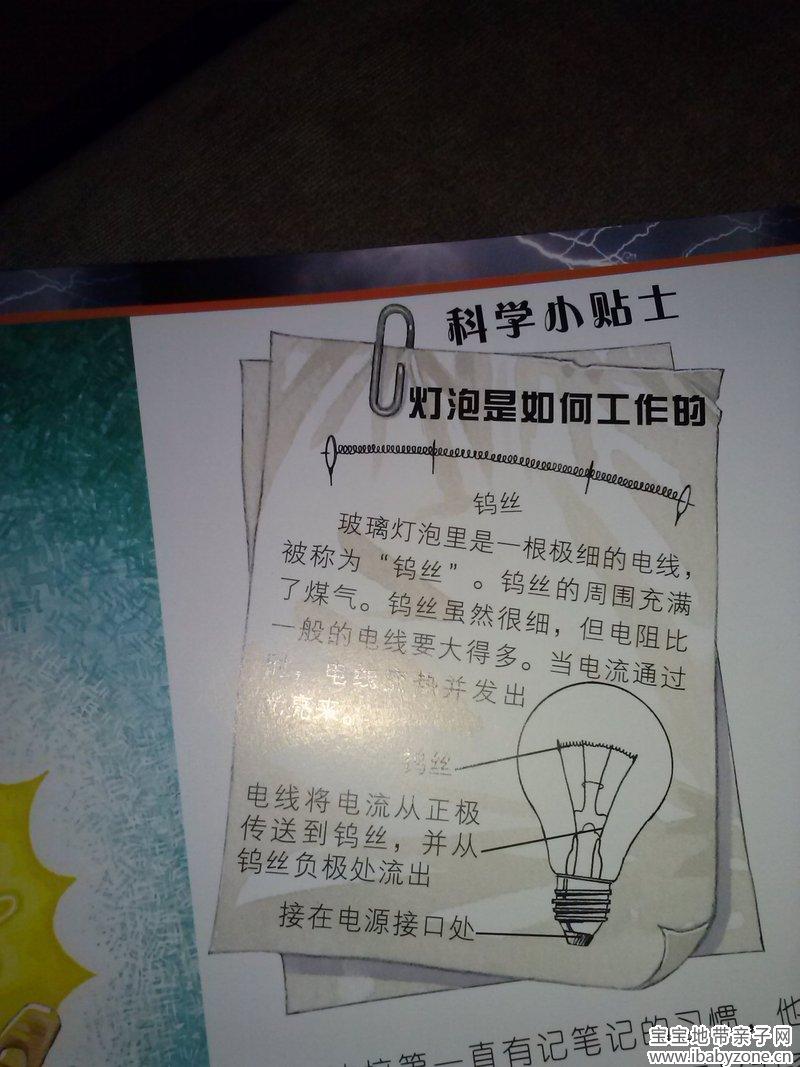 科学小贴士
灯泡是如何工作的
钨丝
玻璃灯泡里是一根极细的电线，
被称为“钨丝”。钨丝的周围充满
了煤气。钨丝虽然很细，但电阻比
一般的电线要大得多。当电流通过
时，电线变热并发出
光亮来。
钨丝
电线将电流从正极
传送到钨丝，并从
钨丝负极处流出
接在电源接口处
第一直有记笔记的习惯，他
宝宝地带亲子网
www.ibabyzone.cn